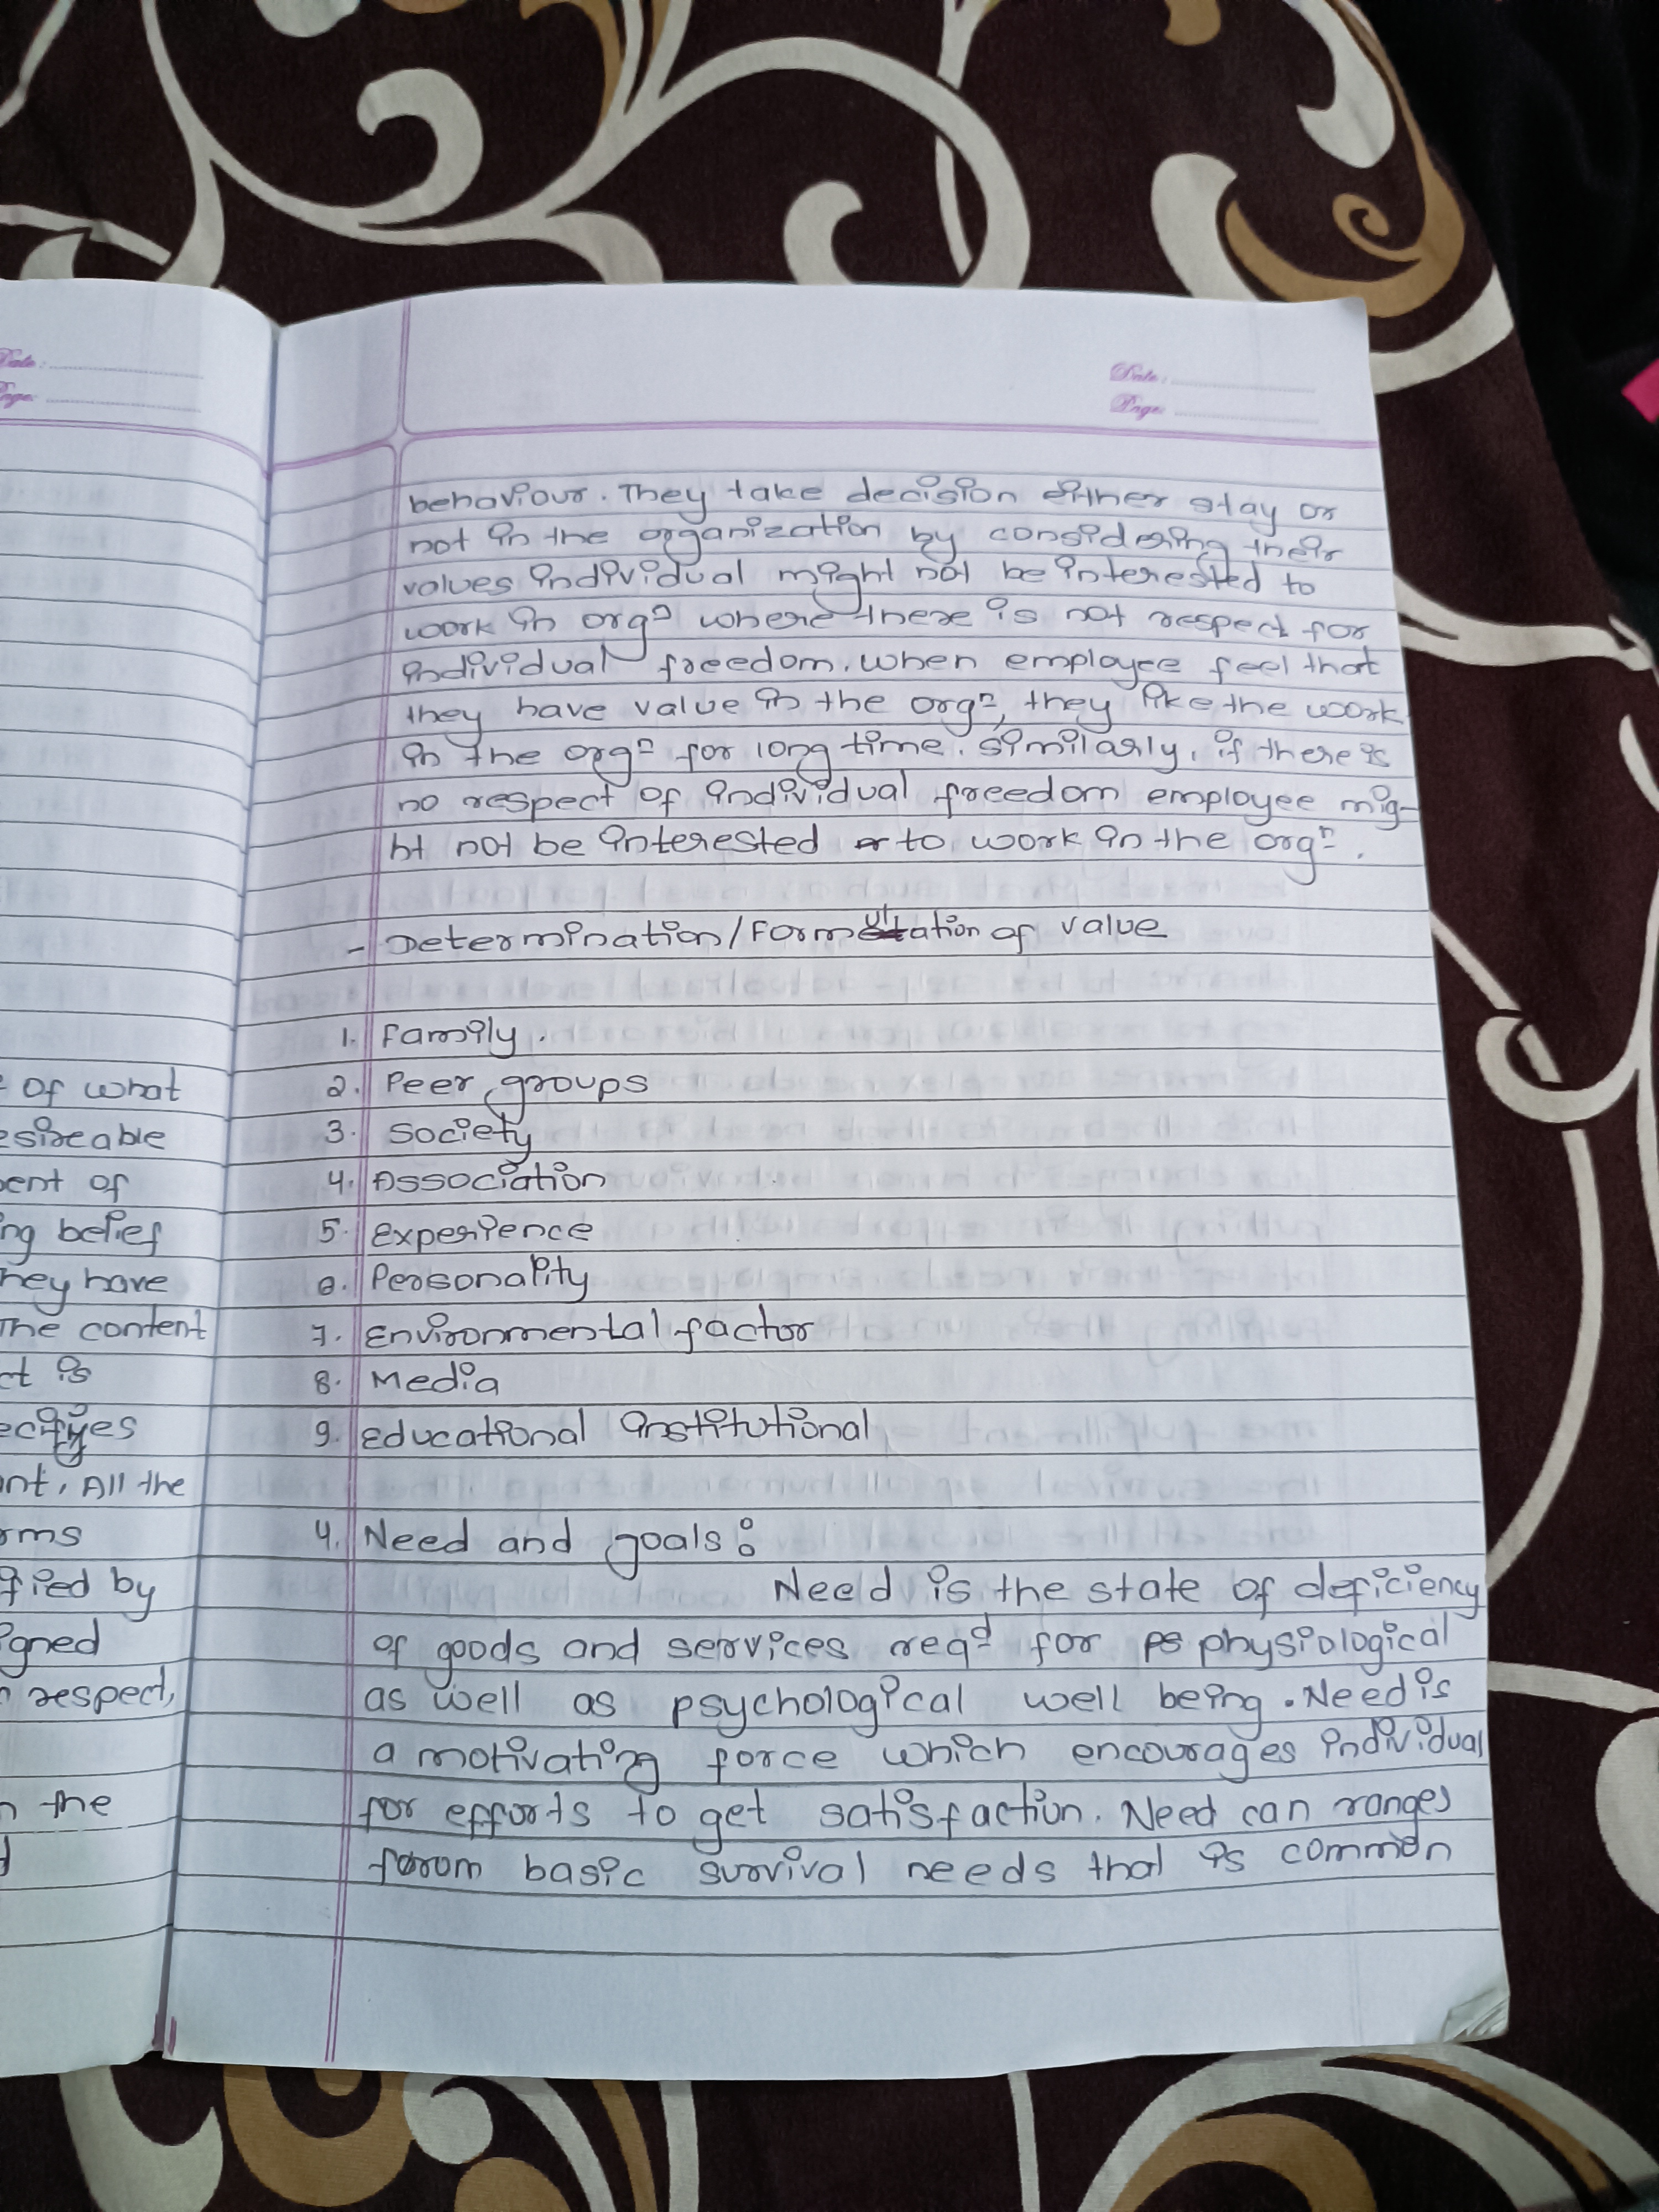 Date:
Page:
of what
esireable
ent of
ng belief
hey have
The content
ct is
ecifyes
nt, All the
rms
fied by
igned
respect,
the
Date:
Page:
behaviour. They take decision either stay or
not in the organization by considering their
values individual might not be interested to
work in orgn where there is not respect for
individual freedom. when employee feel that
they have value in the orgn, they like the work
in the orgn for long time. similarly, if there is
no respect of individual freedom employee mig-
ht not be interested to work in the orgn.
- Determination/Formulation of value
1. Family.
2. Peer groups
3. Society
4. Association
5. Experience
6. Personality
7. Environmental factor
8. Media
9. Educational institutional
4. Need and goals:
Need is the state of deficiency
of goods and services reqd for physiological
as well as psychological well being. Need is
a motivating force which encourages individual
for efforts to get satisfaction. Need can ranges
from basic survival needs that is common